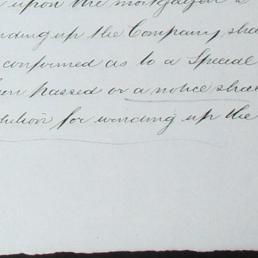 upon the mortgaged
nding up the Company sha
confirmed as to a Special
en passed or a notice shal
olution for winding up the